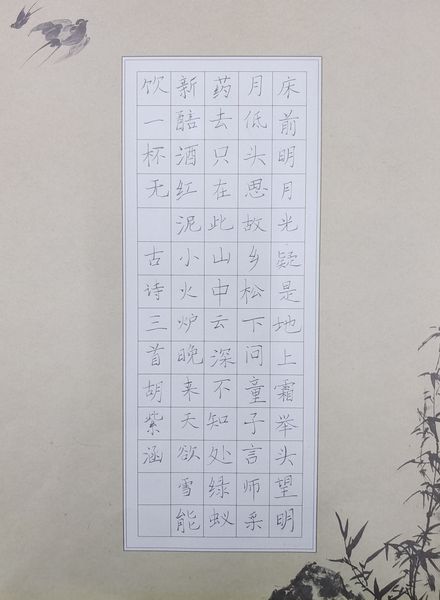 床前明月光疑是地上霜举头望明
月低头思故乡松下问童子言师采
药去只在此山中云深不知处绿蚁
新醅酒红泥小火炉晚来天欲雪能
饮一杯无 古诗三首胡紫涵